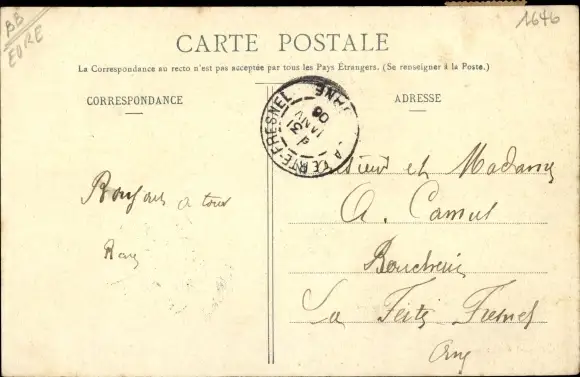 BB
EURE
1646
CARTE POSTALE
La Correspondance au recto n'est pas acceptée par tous les Pays Étrangers. (Se renseigner à la Poste.)
CORRESPONDANCE
ADRESSE
LA FERTE-FRESNEL
ORNE
31
JANV
06
Monsieur et Madame
A. Camus
Boucherie
La Ferté Fresnel
Orne
Bonjour a tous